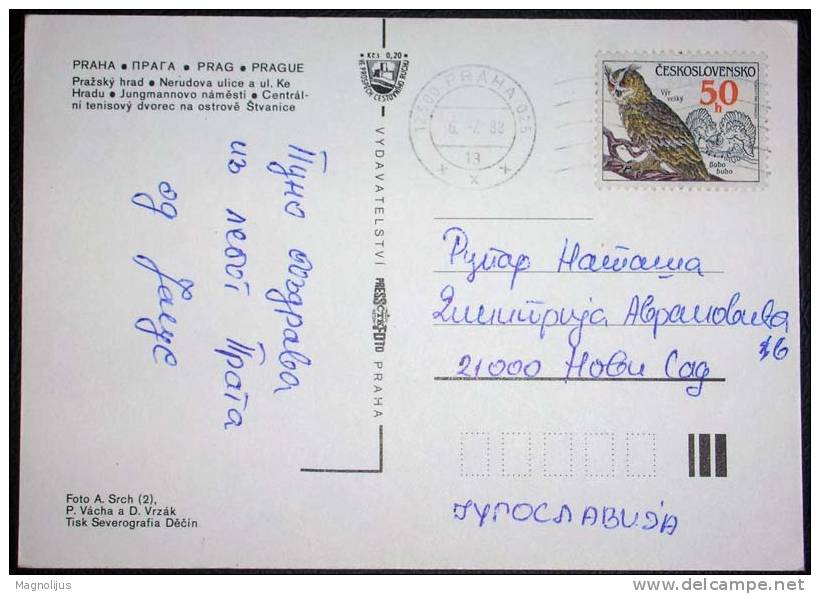 PRAHA • ПРАГА • PRAG • PRAGUE
Pražský hrad • Nerudova ulice a ul. Ke
Hradu • Jungmannovo náměstí • Centrál-
ní tenisový dvorec na ostrově Štvanice
Пуно поздрава
из лепог Прага
од
Foto A. Srch (2),
P. Vácha a D. Vrzák
Tisk Severografia Děčín
Kčs 0,20
VE PROSPĚCH CESTOVNÍHO RUCHU
VYDAVATELSTVÍ PRESSFOTO PRAHA
PRAHA 025
13
ČESKOSLOVENSKO
50 h
Výr
velký
Bubo
bubo
Рупар Наташа
Димитрија Аврамовића
21000 Нови Сад
ЈУГОСЛАВИЈА
Magnolijus
delcampe.net